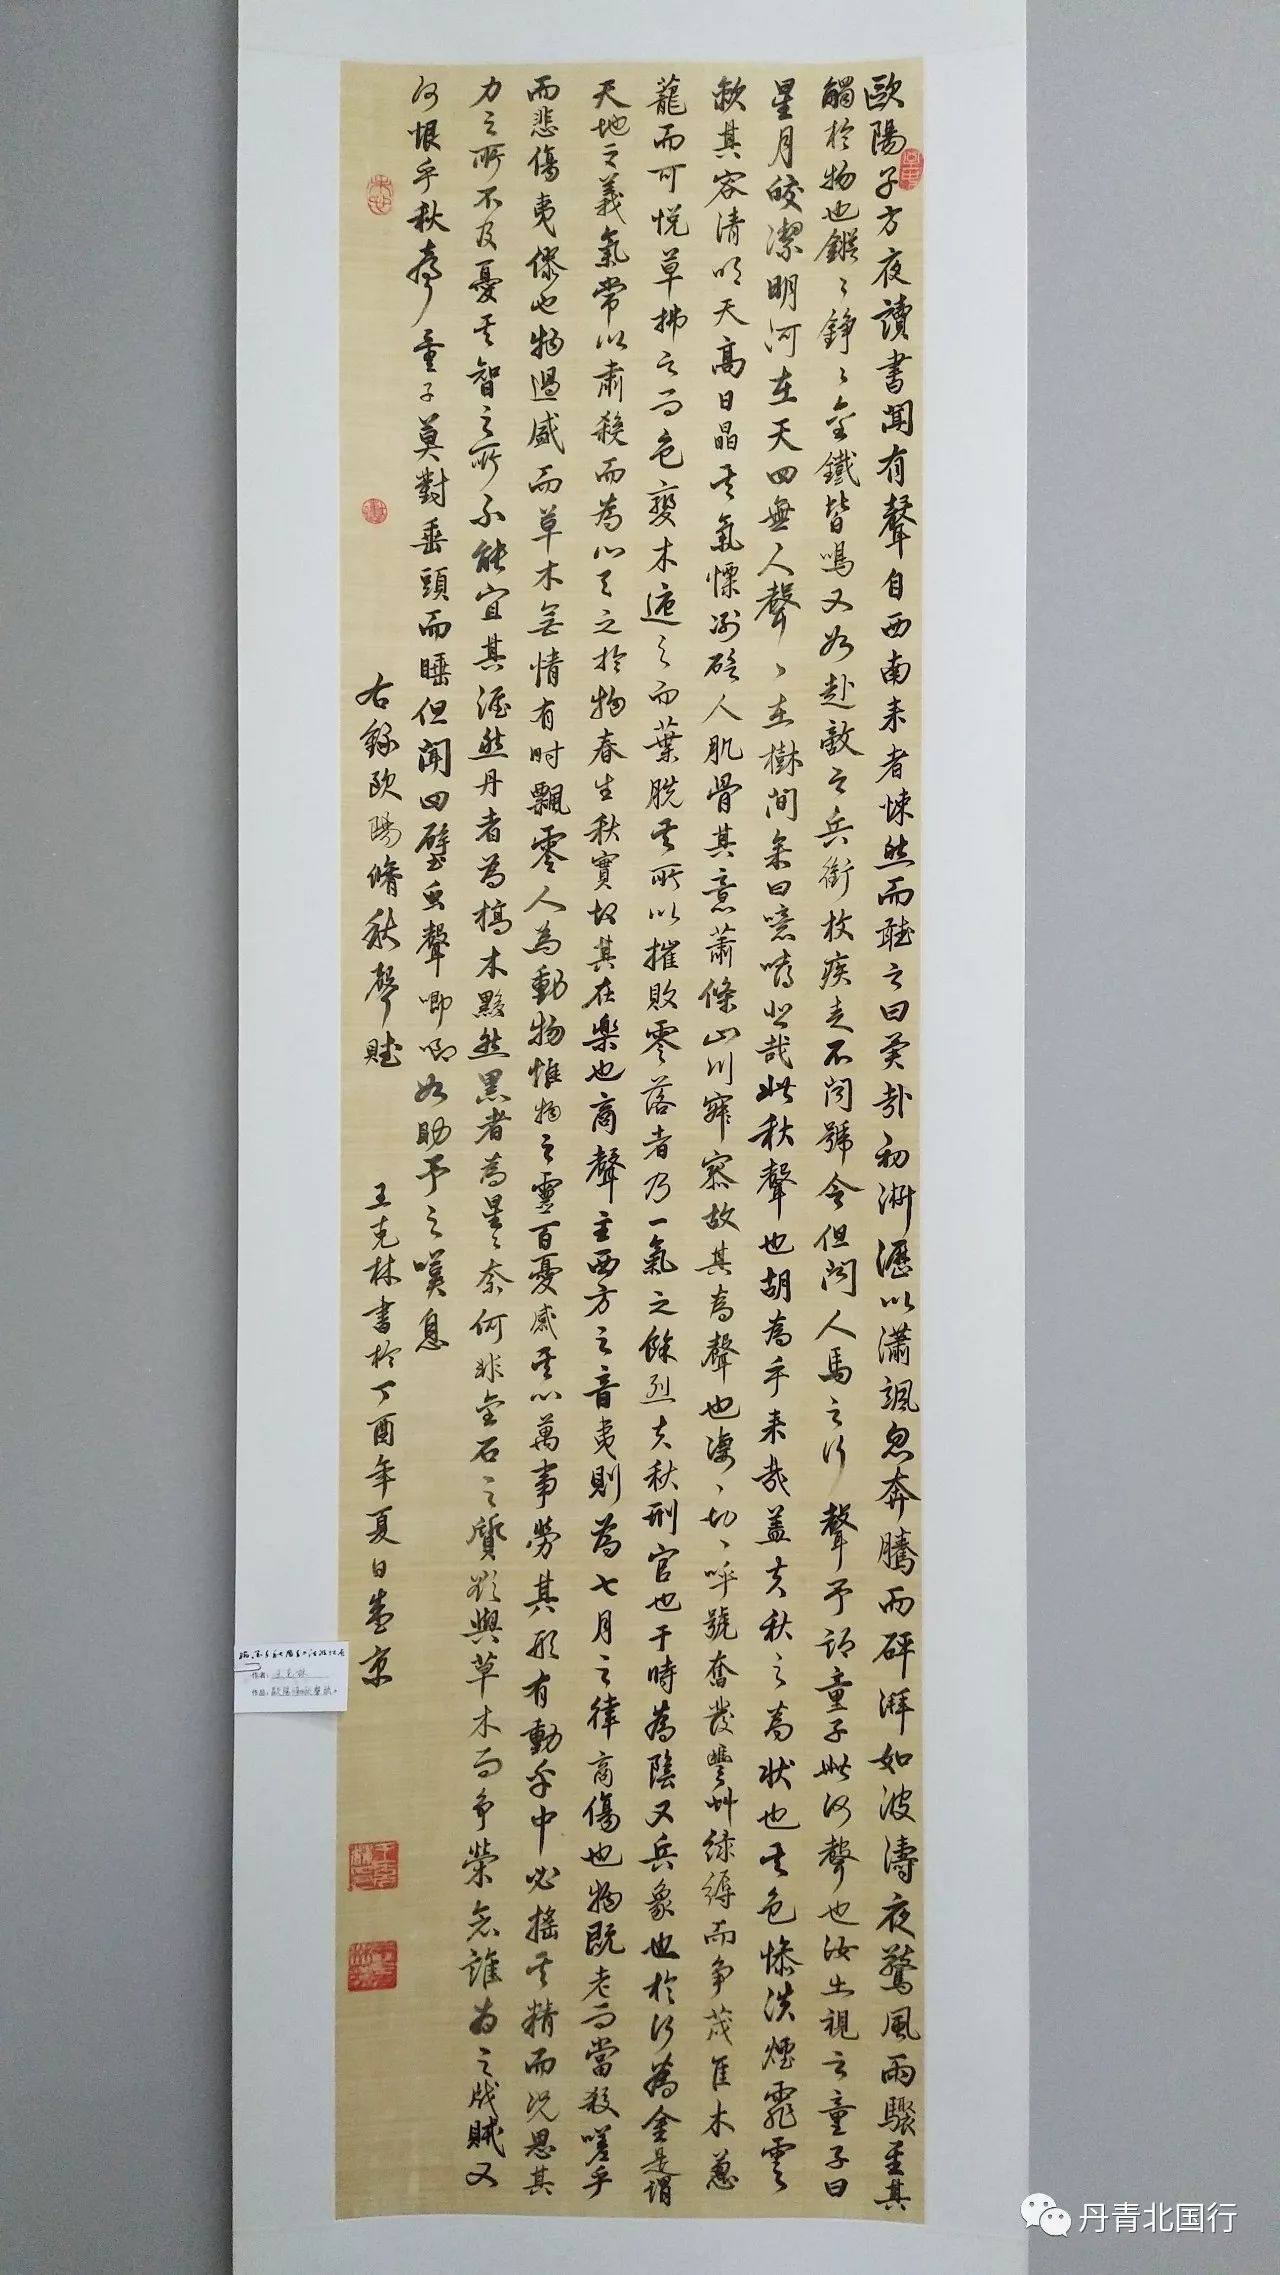 歐陽子方夜讀書聞有聲自西南来者悚然而聽之曰異哉初淅瀝以瀟颯忽奔騰而砰湃如波濤夜驚風雨驟至其
觸於物也鏦々錚々金鐵皆鳴又如赴敵之兵銜枚疾走不聞號令但聞人馬之行聲予謂童子此何聲也汝出視之童子曰
星月皎潔明河在天四無人聲々在樹間余曰噫嘻悲哉此秋聲也胡為乎来哉蓋夫秋之為状也其色惨淡煙霏雲
斂其容清明天高日晶其氣慄冽砭人肌骨其意蕭條山川寂寥故其為聲也凄々切々呼號奮發豐草綠縟而争茂佳木蔥
蘢而可悦草拂之而色變木遭之而葉脱其所以摧敗零落者乃一氣之餘烈夫秋刑官也于時為陰又兵象也於行為金是謂
天地之義氣常以肅殺而為心天之於物春生秋實故其在樂也商聲主西方之音夷則為七月之律商傷也物既老而當殺嗟乎
而悲傷夷僇也物過盛而草木無情有时飄零人為動物惟物之靈百憂感其心萬事勞其形有動乎中必摇其精而況思其
力之所不及憂其智之所不能宜其渥然丹者為槁木黟然黑者為星々奈何非金石之質欲與草木而争榮念誰為之戕賊又
何恨乎秋聲童子莫對垂頭而睡但聞四壁虫聲唧唧如助予之嘆息
右録歐陽脩秋聲賦
王克林書於丁酉年夏日盛京
作者:王克林
作品:歐陽脩秋聲賦
丹青北国行